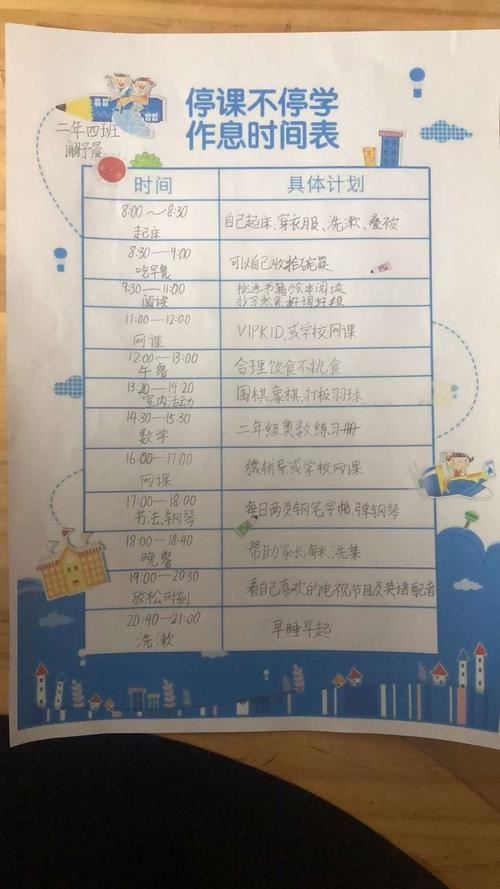 停课不停学
作息时间表
二年四班
时间 具体计划
8:00～8:30
起床
自己起床、穿衣服、洗漱、叠被
8:30—9:00
吃早餐
可以自己收拾碗筷
9:30—11:00
阅读
挑选书籍/绘本阅读
好词好段
11:00—12:00
网课
VIPKID,或学校网课
12:00—13:00
午餐
合理饮食不挑食
13:20—14:20
室内活动
围棋、象棋、打板羽球
14:30—15:30
数学
二年级奥数练习册
16:00—17:00
网课
猿辅导或学校网课
17:00—18:00
书法、钢琴
每日两页钢笔字帖、弹钢琴
18:00—18:40
晚餐
帮助家长淘米、洗菜
19:00—20:30
放松时刻
看自己喜欢的电视节目及英语配音
20:40—21:00
洗漱
早睡早起